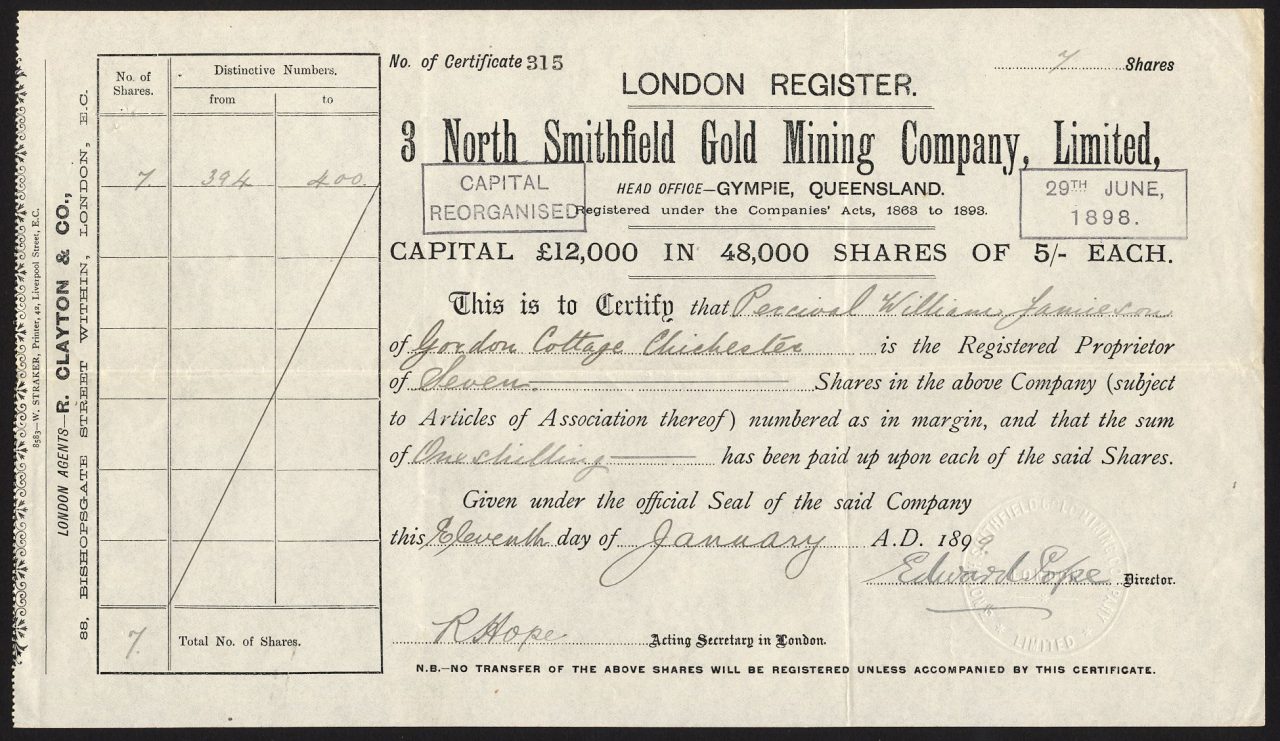 8583—W. STRAKER, Printer, 42, Liverpool Street, E.C.
LONDON AGENTS—R. CLAYTON & CO.,
88, BISHOPSGATE STREET WITHIN, LONDON, E.C.
No. of Shares.
Distinctive Numbers.
from
to
7.
394
400.
7.
Total No. of Shares.
No. of Certificate 315
7 Shares
LONDON REGISTER.
3 North Smithfield Gold Mining Company, Limited,
CAPITAL
REORGANISED
HEAD OFFICE—GYMPIE, QUEENSLAND.
29TH JUNE,
1898.
Registered under the Companies' Acts, 1863 to 1893.
CAPITAL £12,000 IN 48,000 SHARES OF 5/- EACH.
This is to Certify that Percival William Jamieson
of Gordon Cottage Chichester is the Registered Proprietor
of Seven. Shares in the above Company (subject
to Articles of Association thereof) numbered as in margin, and that the sum
of One shilling has been paid up upon each of the said Shares.
Given under the official Seal of the said Company
this Eleventh day of January A.D. 1899.
Edward Pope Director.
R Hope Acting Secretary in London.
LIMITED
N.B.—NO TRANSFER OF THE ABOVE SHARES WILL BE REGISTERED UNLESS ACCOMPANIED BY THIS CERTIFICATE.